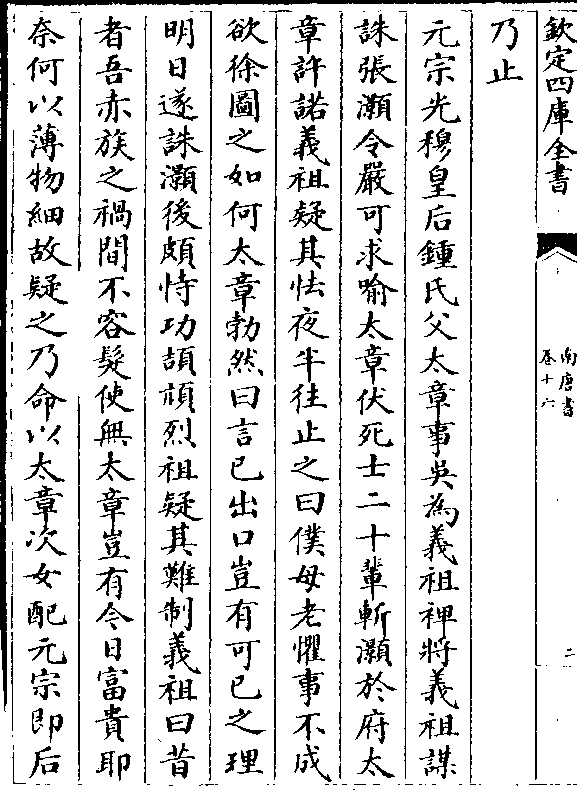 欽定四庫全書
南唐書
卷十六
二
乃止
元宗光穆皇后鍾氏父太章事吳為義祖裨將義祖謀
誅張灝令嚴可求喻太章伏死士二十輩斬灝於府太
章許諾義祖疑其怯夜半往止之曰僕母老懼事不成
欲徐圖之如何太章勃然曰言已出口豈有可已之理
明日遂誅灝後頗恃功頡頏烈祖疑其難制義祖曰昔
者吾赤族之禍間不容髮使無太章豈有今日富貴耶
奈何以薄物細故疑之乃命以太章次女配元宗即后